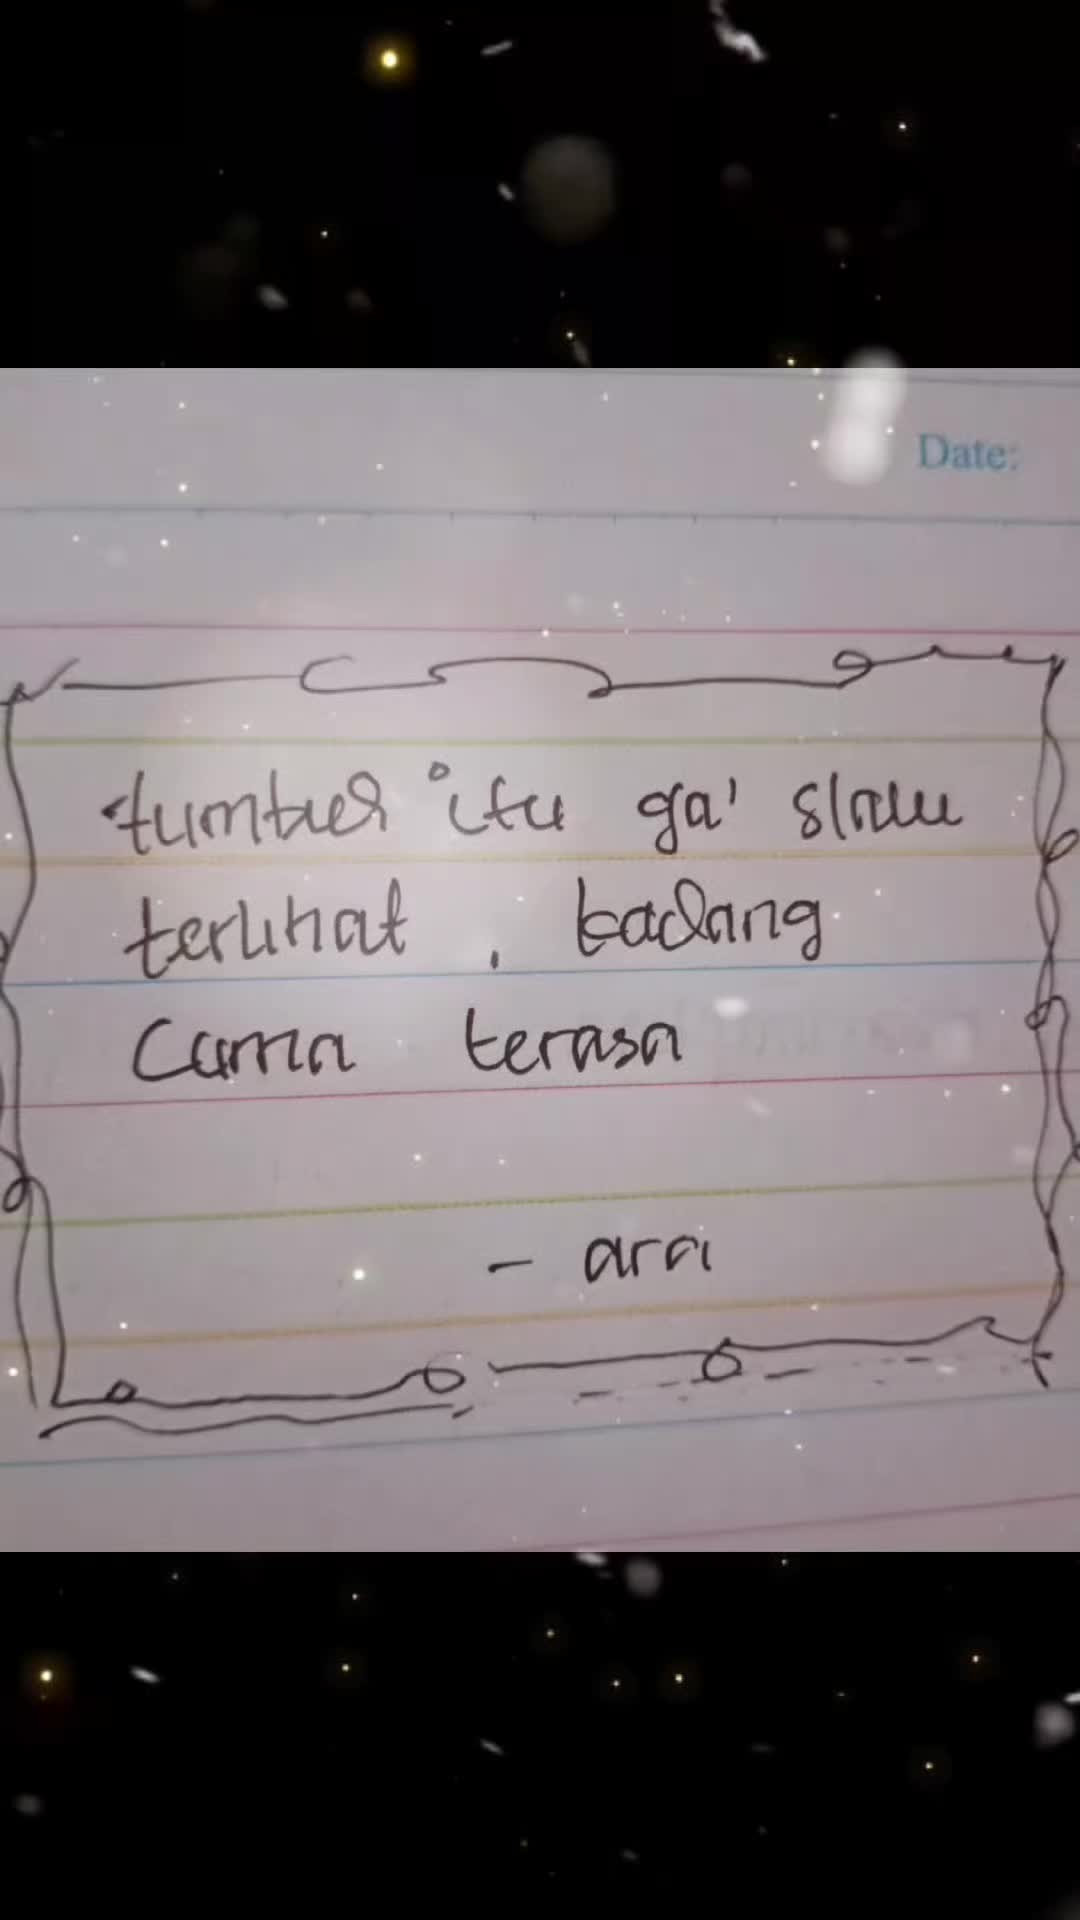 Date:
tumbuh itu ga' slalu
terlihat, kadang
Cuma terasa
- ara